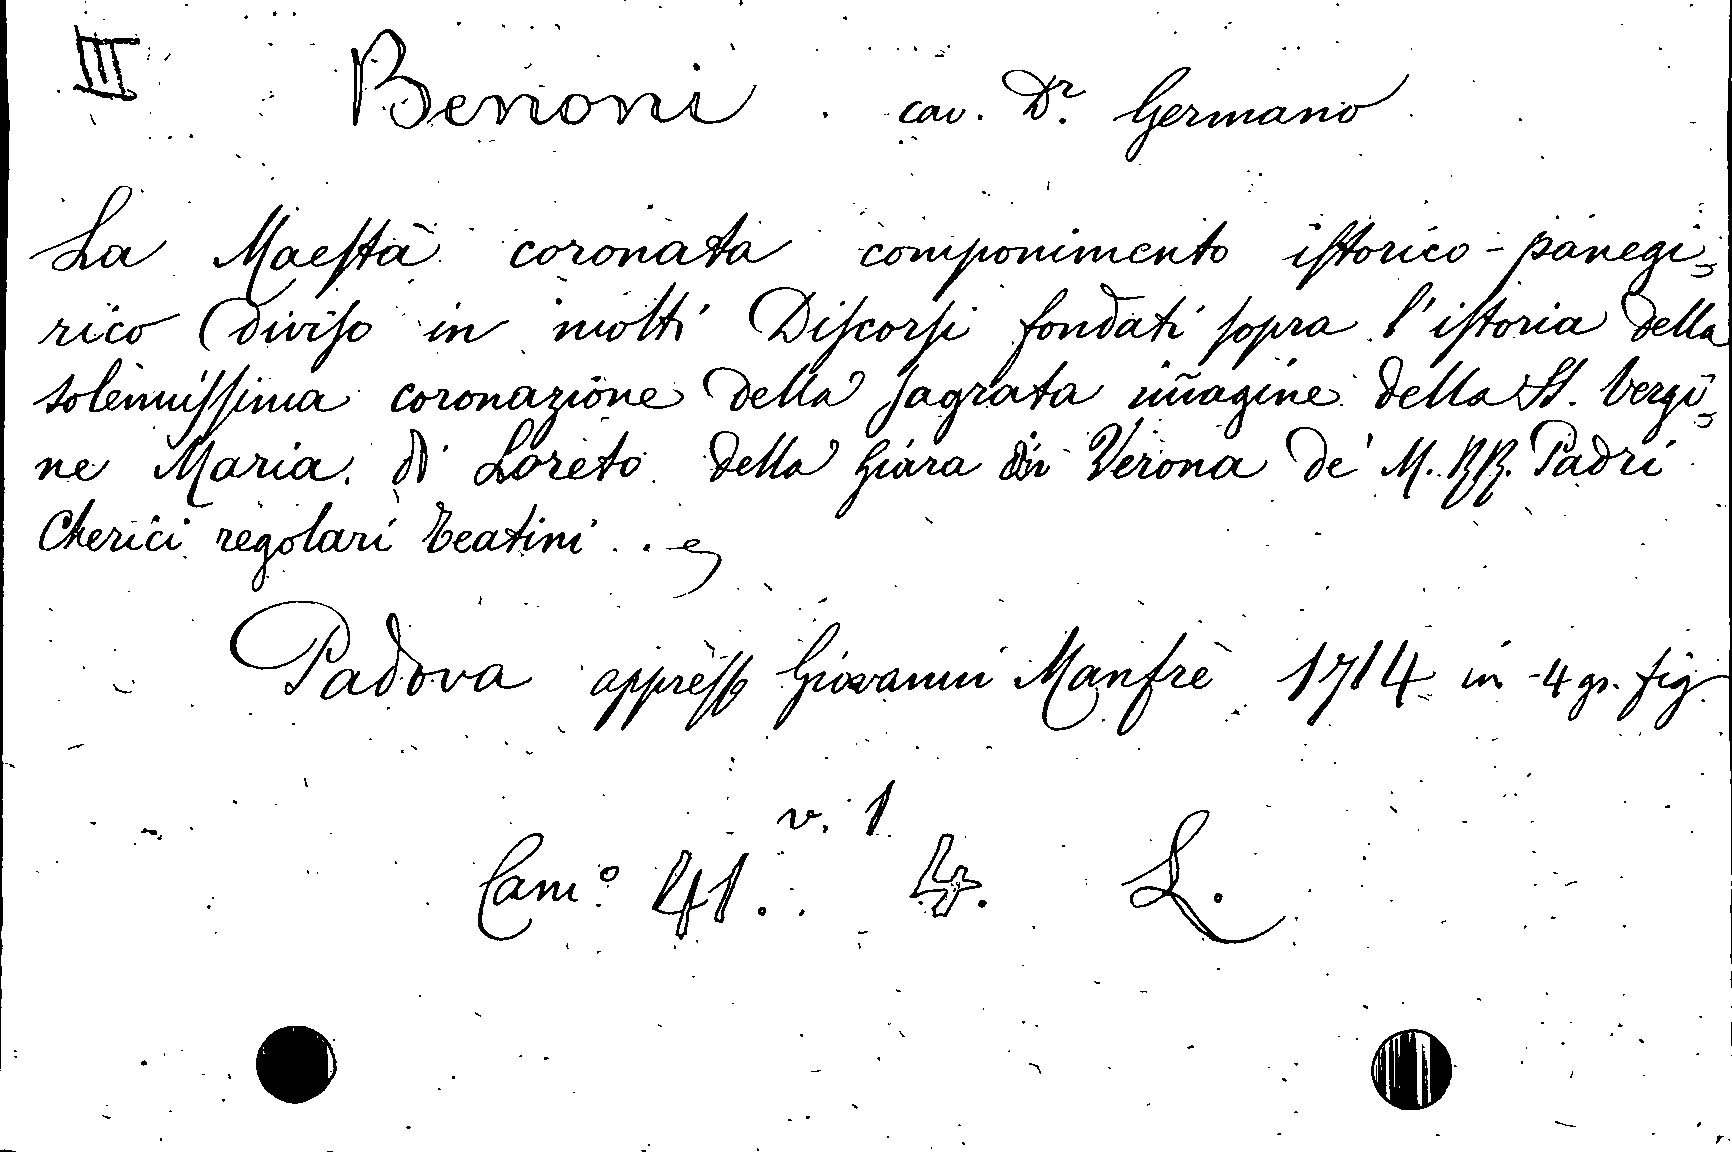 III
Benoni cav. Dr. Germano
La Maestà coronata componimento istorico-panegi=
rico diviso in molti Discorsi fondati sopra l'istoria della
solennissima coronazione della sagrata im̃agine della SS. Vergi=
ne Maria di Loreto della Giara in Verona de' M. RR. Padri
Cherici regolari Teatini . .
Padova appresso Giovanni Manfrè 1714 in -4 gr. fig.
v. 1
Cam.° 41. 4. L.